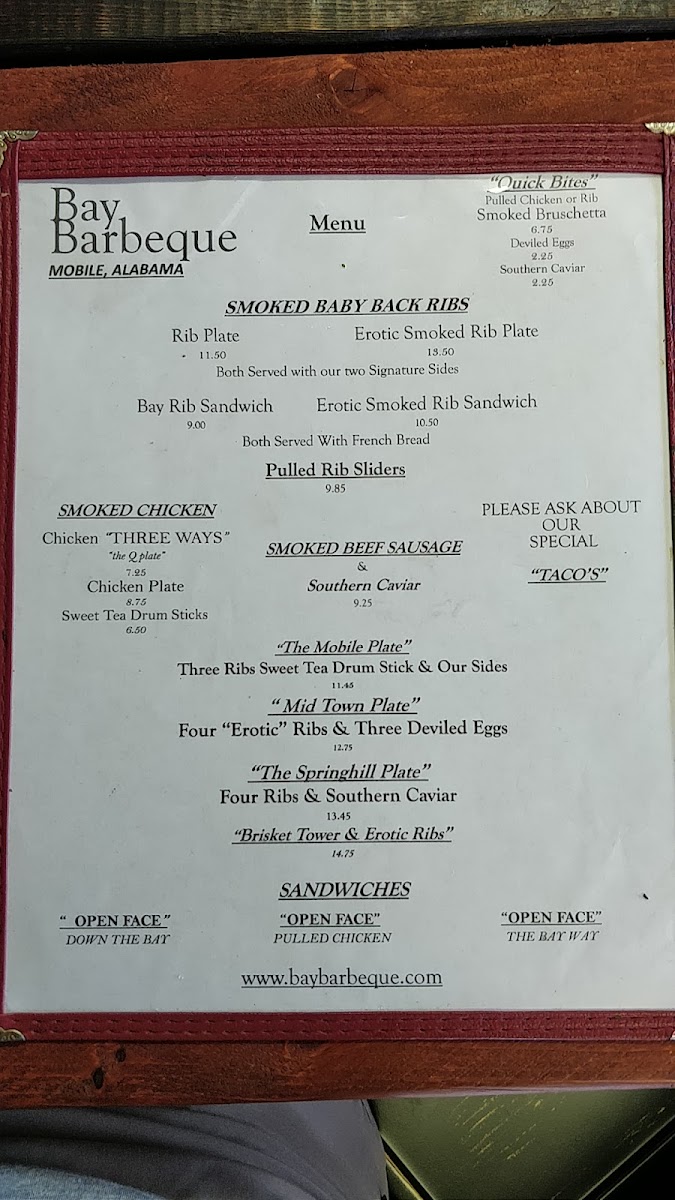 Bay
Barbeque
MOBILE, ALABAMA
Menu
"Quick Bites"
Pulled Chicken or Rib
Smoked Bruschetta
6.75
Deviled Eggs
2.25
Southern Caviar
2.25
SMOKED BABY BACK RIBS
Rib Plate
11.50
Erotic Smoked Rib Plate
13.50
Both Served with our two Signature Sides
Bay Rib Sandwich
9.00
Erotic Smoked Rib Sandwich
10.50
Both Served With French Bread
Pulled Rib Sliders
9.85
SMOKED CHICKEN
Chicken "THREE WAYS"
"the Q plate"
7.25
Chicken Plate
8.75
Sweet Tea Drum Sticks
6.50
SMOKED BEEF SAUSAGE
&
Southern Caviar
9.25
PLEASE ASK ABOUT
OUR
SPECIAL
"TACO'S"
"The Mobile Plate"
Three Ribs Sweet Tea Drum Stick & Our Sides
11.45
" Mid Town Plate"
Four "Erotic" Ribs & Three Deviled Eggs
12.75
"The Springhill Plate"
Four Ribs & Southern Caviar
13.45
"Brisket Tower & Erotic Ribs"
14.75
SANDWICHES
" OPEN FACE"
DOWN THE BAY
"OPEN FACE"
PULLED CHICKEN
"OPEN FACE"
THE BAY WAY
www.baybarbeque.com